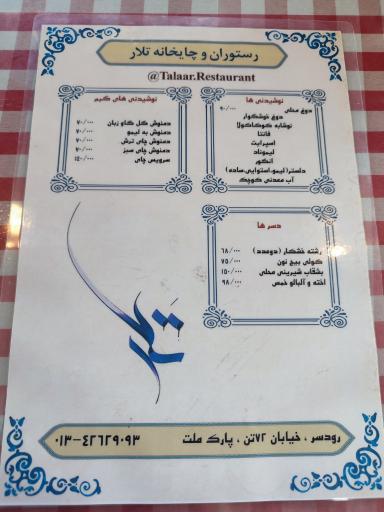 رستوران و چایخانه تلار
@Talaar.Restaurant
نوشیدنی ها
دوغ محلی ۹۰/۰۰۰
دوغ خوشگوار
نوشابه کوکاکولا
فانتا
اسپرایت
لیموناد
انگور
دلستر(لیمو،استوایی،ساده)
آب معدنی کوچک
نوشیدنی های گرم
دمنوش گل گاو زبان ۷۰/۰۰۰
دمنوش به لیمو ۷۰/۰۰۰
دمنوش چای ترش ۷۰/۰۰۰
دمنوش چای سبز ۷۰/۰۰۰
سرویس چای ۱۴۰/۰۰۰
دسر ها
رشته خشکار (دوعدد) ۶۸/۰۰۰
کولی بیج نون ۷۵/۰۰۰
بشقاب شیرینی محلی ۱۵۰/۰۰۰
اخته و آلبالو خمس ۹۸/۰۰۰
تلار
رودسر ، خیابان ۷۲تن ، پارک ملت ۰۱۳-۴۲۶۲۹۰۹۳